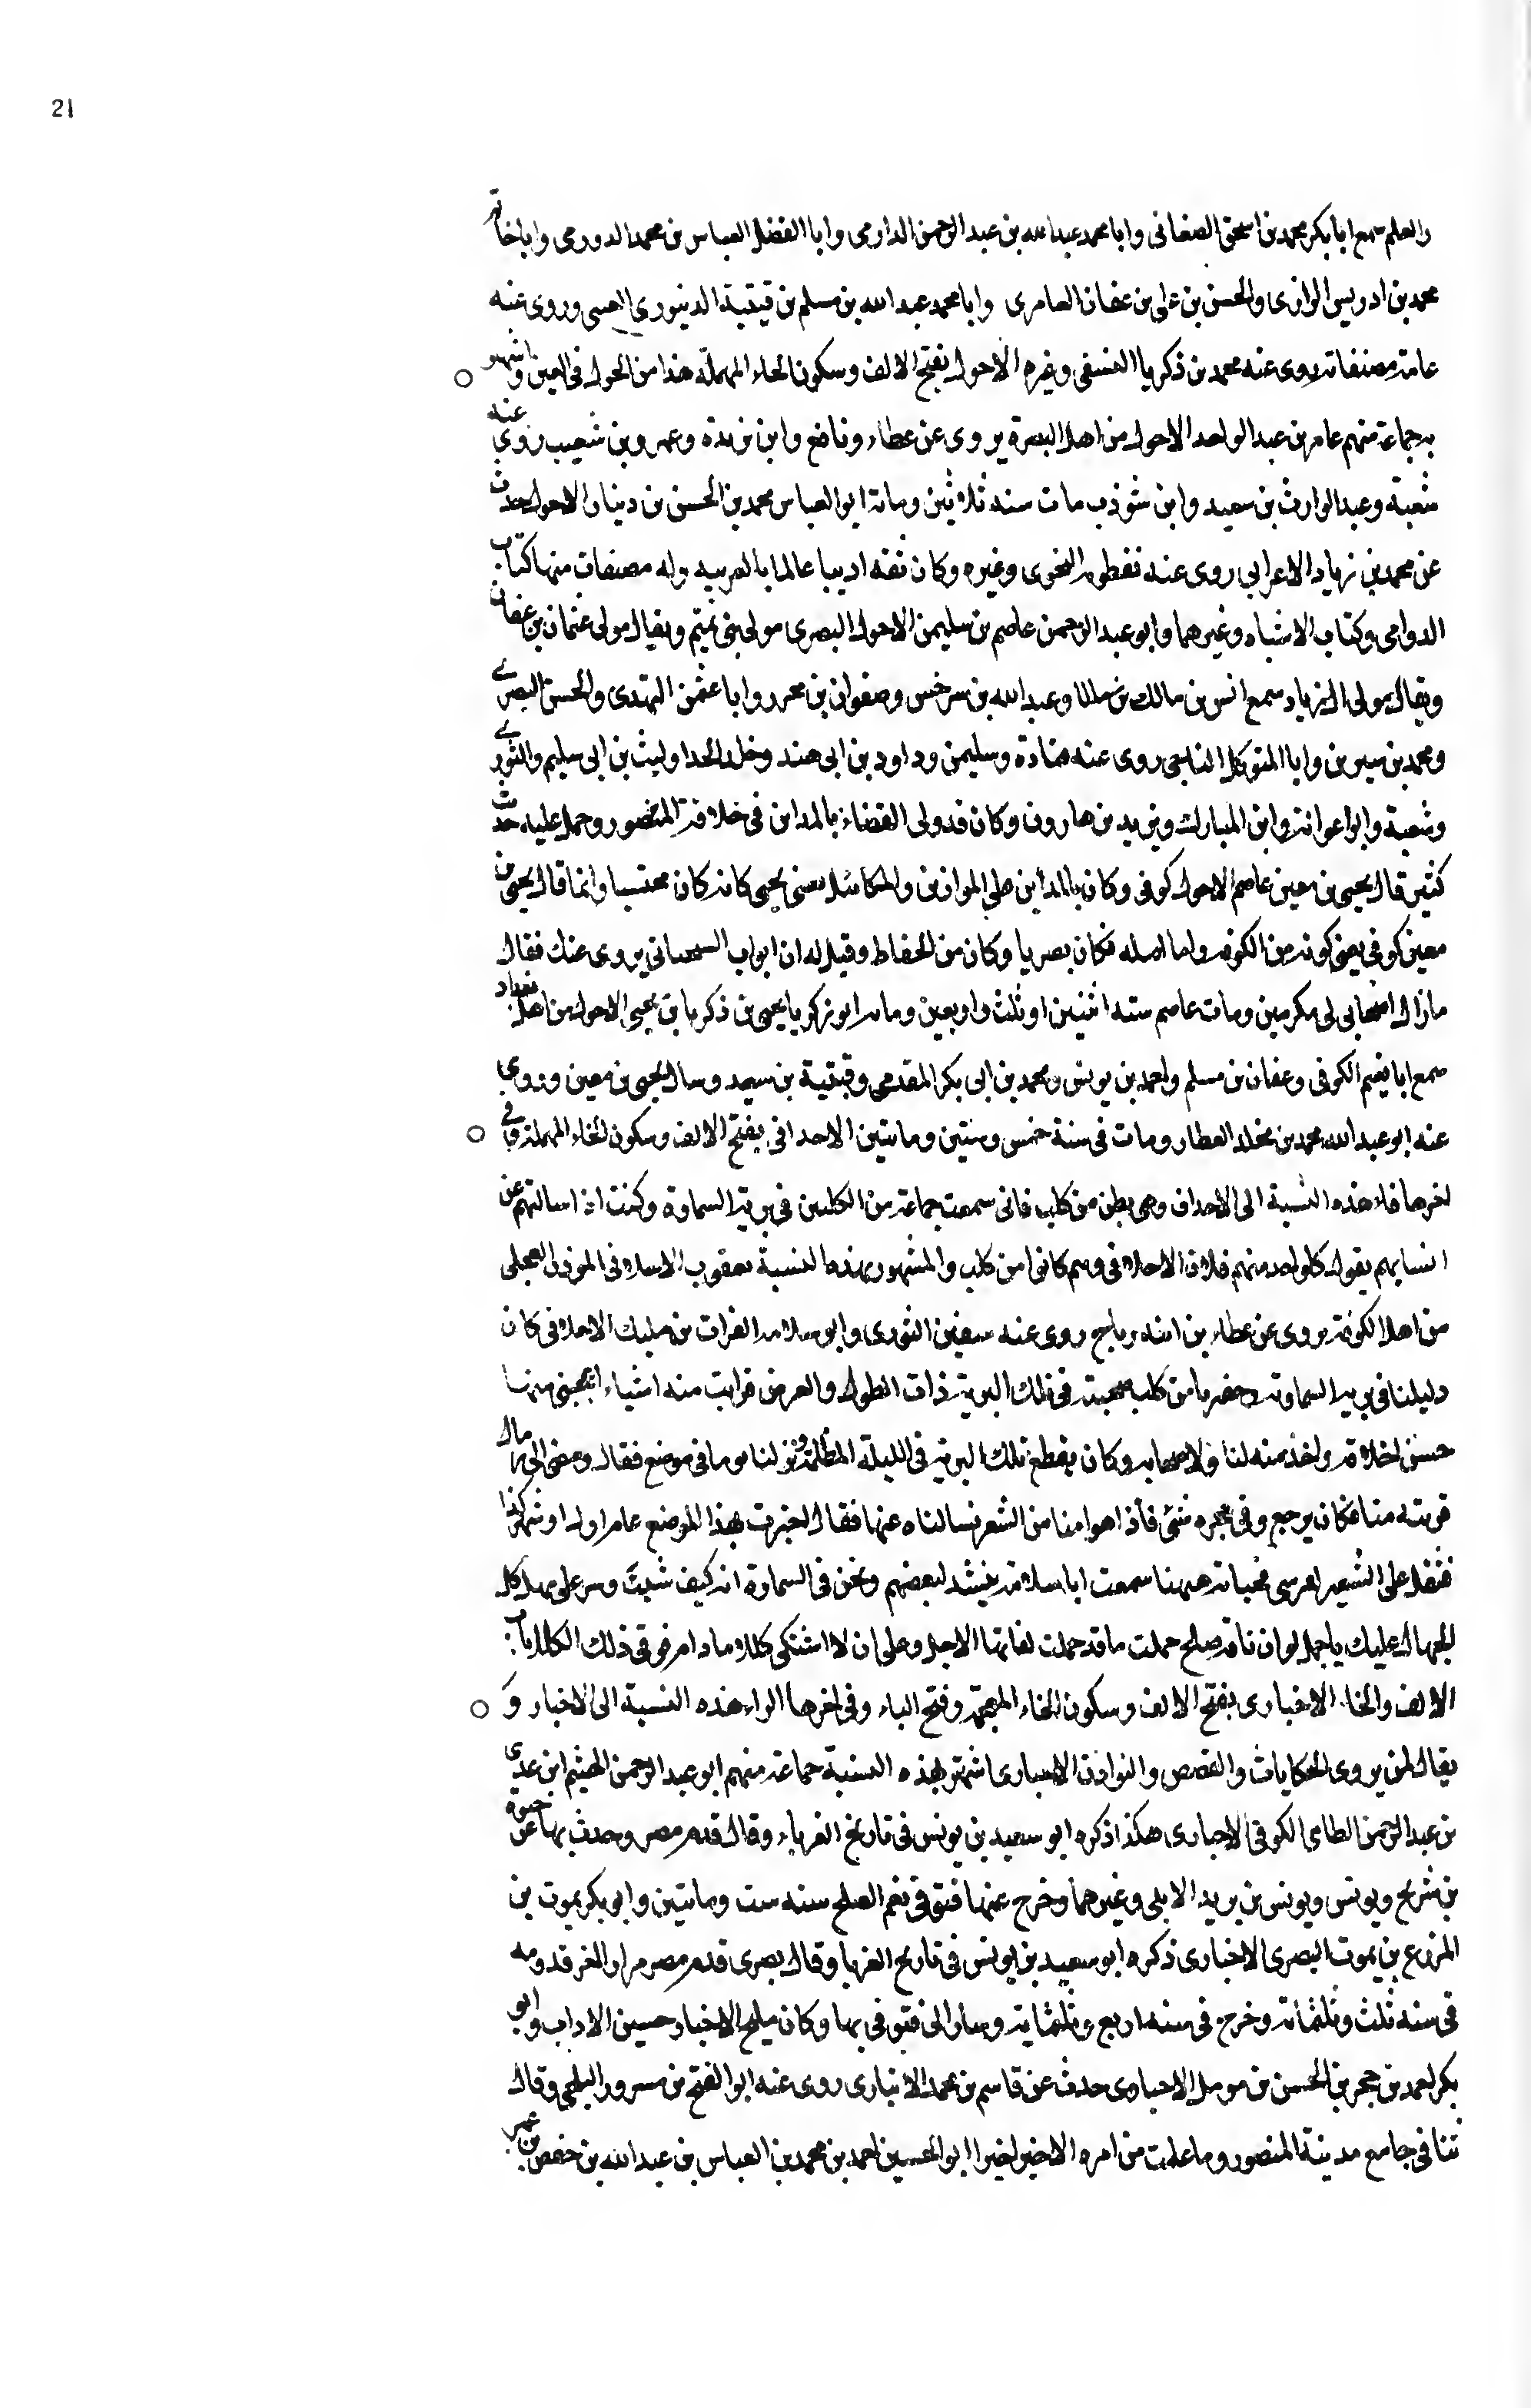 21
والعلم سمع ابا بكر محمد بن اسحق الصغانى وابا محمد عبد الله بن عبد الرحمن الدارمى وابا الفضل العباس بن محمد الدورى وابا حاتم
محمد بن ادريس الرازى والحسن بن على بن عفان العامرى وابا محمد عبد الله بن مسلم بن قتيبة الدينورى وروى عنه
عامة مصنفاته روى عنه محمد بن ذكريا النسفى وغيره الاحول بفتح الالف وسكون الحاء المهملة هذا من الحول فى العين واشهر
به جماعة منهم عامر بن عبد الواحد الاحول من اهل البصرة يروى عن عطاء ونافع وابن بريدة وعمرو بن شعيب روى عنه
شعبة وعبد الوارث بن سعيد وابن شوذب مات سنة ثلاثين ومائة ابو العباس محمد بن الحسن بن دينار الاحول حدث
عن محمد بن زياد الاعرابى روى عنه نفطويه النحوى وغيره وكان ثقه اديبا عالما بالعربيه وله مصنفات منها كتاب
الدواهى وكتاب الاشباه وغيرهما وابو عبد الرحمن عاصم بن سليمن الاحول البصرى مولى بنى تميم ويقال مولى عثمان بن عفان
ويقال مولى ال زياد سمع انس بن مالك وعبد الله بن سرخس وصفوان بن محرز وابا عثمن النهدى والحسن البصرى
ومحمد بن سيرين وابا المتوكل الناجى روى عنه قتادة وسليمن وداود بن ابى هند وخلد الحدا وليث بن ابى سليم والثورى
وشعبة وابو اعوانه وابن المبارك ويزيد بن هارون وكان قد ولى القضاء بالمداين فى خلافة المنصور وحمل عليه حديث
كثير قال يحيى بن معين عاصم الاحول كوفى وكان بالمداين على الموازين والمكائيل يعنى يحيى كانه كان محتسبا وانما قال يحيى بن
معين كوفى يعنى كونه من الكوفه واما اصله فكان بصريا وكان من الحفاظ وقيل له ان ايوب السختيانى يروى عنك فقال
مازال اصحابى لى مكرمين ومات عاصم سنه اثنين او ثلث واربعين ومايه ابو زكريا يحيى بن ذكريا بن يحيى الاحول من اهل بغداد
سمع ابا نعيم الكوفى وعفان بن مسلم واحمد بن يونس ومحمد بن ابى بكر المقدمى وقتيبة بن سعيد وسال يحيى بن معين وروى
عنه ابو عبد الله محمد بن مخلد العطار ومات فى سنة خمس وستين ومايتين الاحدافى بفتح الالف وسكون الحاء المهملة وفى
اخرها فاء هذه النسبة الى الاحداف وهى بطن من كلب فانى سمعت جماعة من الكلبين فى برية السماوة وكنت اذا سالتهم عن
انسابهم يقول كل واحد منهم فلان الاحلافى وهم كانوا من كلب والمشهور بهذه النسبة يعقوب الاحلافى العجلى
من اهل الكوفة يروى عن عطاء بن رباح روى عنه سفين الثورى وابو سلامه الفرات بن مليك الاحلافى كان
دليلنا فى بريه السماوة حضريا من كلب صحبته فى تلك البرية ذات الطول والعرض فرايت منه اشياء اعجبنى منها
حسن اخلاقه واخذ منه لنا ولاصحابه وكان يقطع تلك البرية فى الليلة المظلمة ونزلنا يوما فى موضع فقال ومضى الى رمال
قريبه منا فكان يرجع وفى حجره شئ فاذا هو امنا من الشعر فسالناه عنها فقال اخترت بهذا الموضع عام اول او شهر كذا
فثقل على الشعير لفرسى فخباته ههنا سمعت ابا سلامة ينشد لبعضهم ونحن فى السماوة انه كيف شيت وسر على مهل كل
الجهال عليك ياجمل لو ان ناقة صالح حملت ما قد حملت لفاتها الاجل وعلى ان لا اشتكى كللا مادام فوقى ذلك الكلل باب
الالف والخا الاخبارى بفتح الالف وسكون الخاء المعجمة وفتح الباء وفى اخرها الراء هذه النسبة الى الاخبار و
يقال لمن يروى الحكايات والقصص والنوادر الاخبارى اشتهر بهذه النسبة جماعة منهم ابو عبد الرحمن الهيثم ابن عدى
بن عبد الرحمن الطاى الكوفى الاخبارى هكذا ذكره ابو سعيد بن يونس فى تاريخ الغرباء وقال قدم مصر وحدث بها عن حيوة
بن شريح ويونس ويونس بن يزيد الايلى وغيرهما وخرج عنها فتوفى بفم الصلح سنه ست ومايتين وابو بكر يموت بن
المزرع بن يموت البصرى الاخبارى ذكره ابو سعيد بن يونس فى تاريخ الغربا وقال بصرى قدم مصر مرارا واخر قدومه
فى سنه ثلث وثلثمائة وخرج فى سنه اربع وثلثمايه وسار الى فتوفى بها وكان مليح الاخبار حسن الاداب وابو
بكر احمد بن حجر بن الحسن بن مومل الاخبارى حدث عن قاسم بن محمد الانبارى روى عنه ابو الفتح بن مسرور البلخى وقال
ثنا فى جامع مدينة المنصور وما علمت من امره الا خيرا ابو الحسين احمد بن محمد بن العباس بن عبد الله بن حفص بن عمر